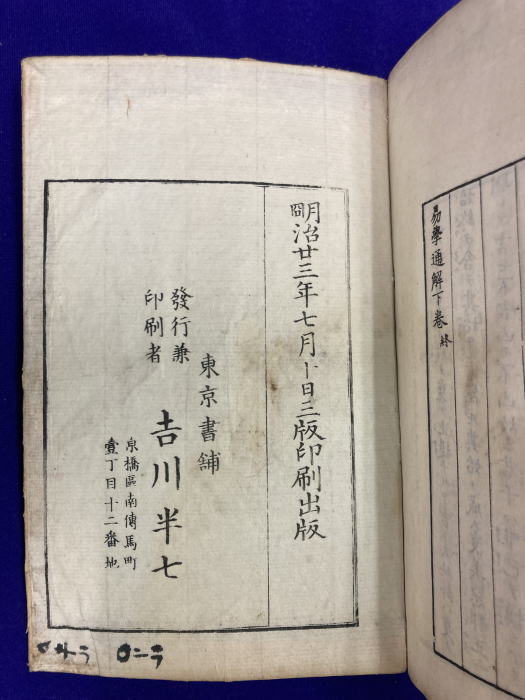 易學通解下卷終
明治廿三年七月十日三版印刷出版
東京書舖
發行兼
印刷者
吉川半七
京橋區南傳馬町
壹丁目十二番地